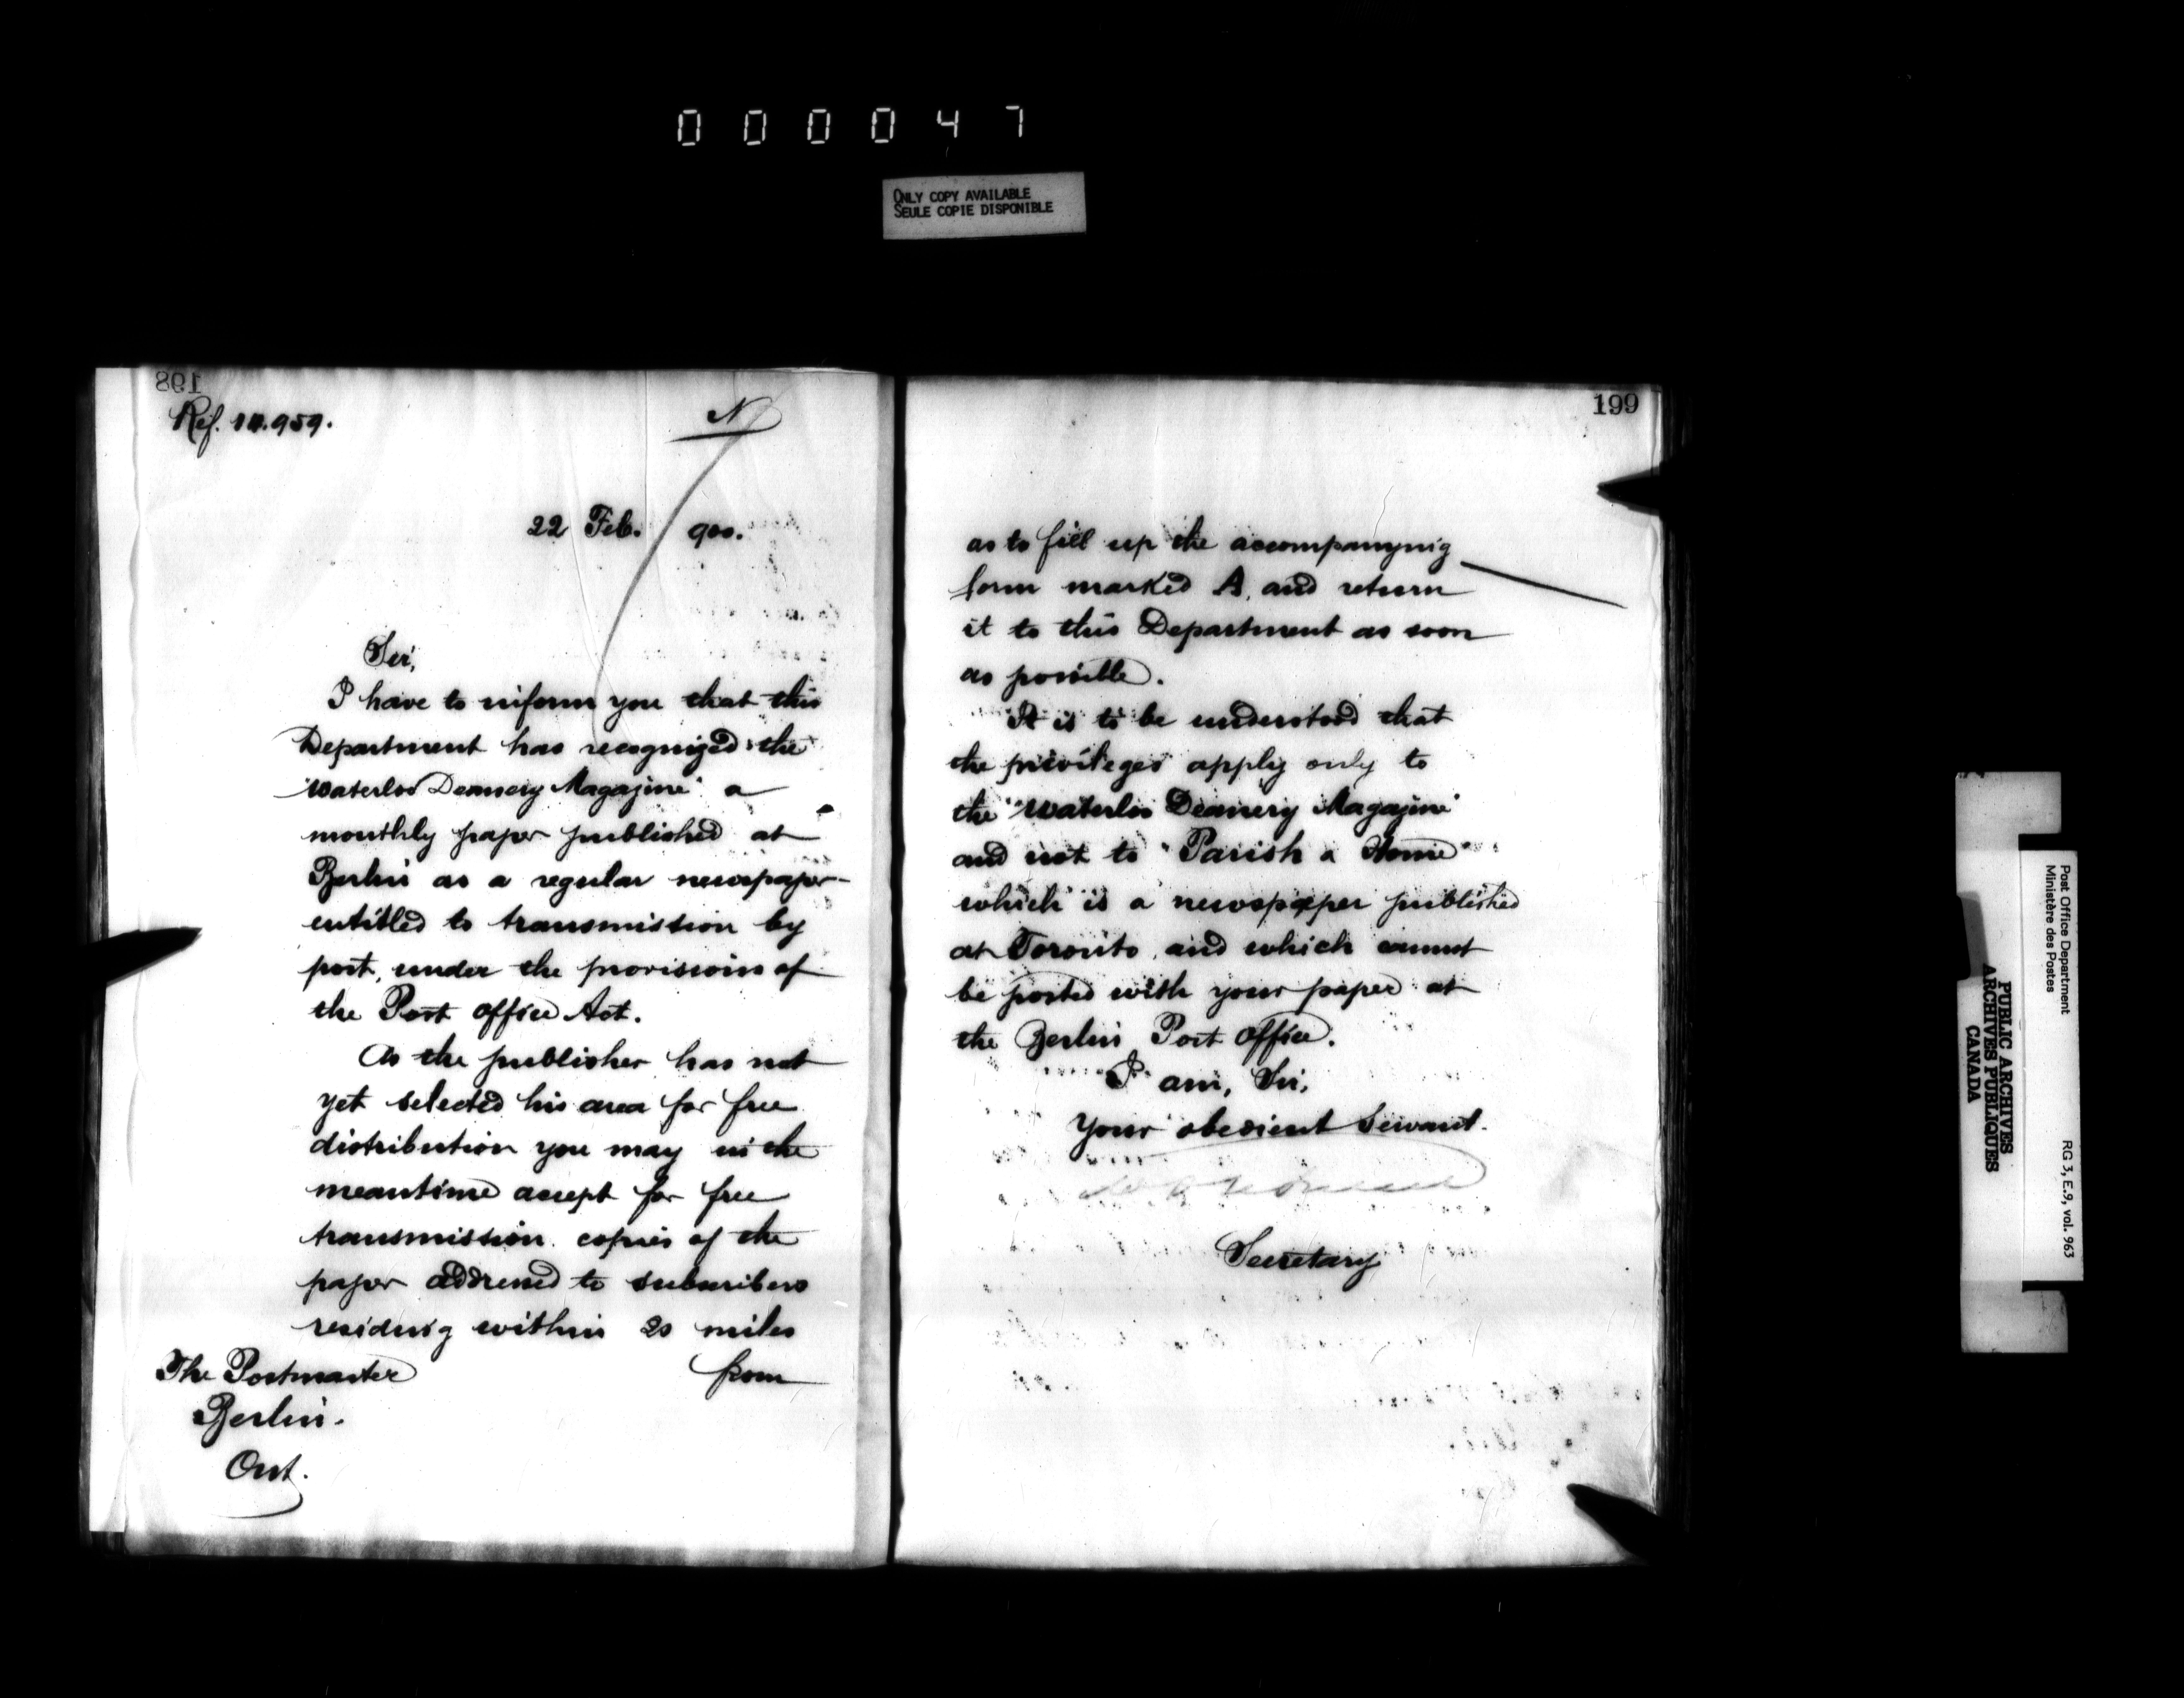 000047
ONLY COPY AVAILABLE
SEULE COPIE DISPONIBLE
198
Ref. 959.
N
22 Feb. 900.
Sir,
I have to inform you that this
Department has recognized the
"Waterloo Deanery Magazine" a
monthly paper published at
Berlin as a regular newspaper
entitled to transmission by
post, under the provisions of
the Post Office Act.
As the publisher has not
yet selected his area for free
distribution you may in the
meantime accept for free
transmission copies of the
paper addressed to subscribers
residing within 20 miles
from
The Postmaster
Berlin.
Ont.
199
as to fill up the accompanying
form marked A, and return
it to this Department as soon
as possible.
It is to be understood that
the privileges apply only to
the "Waterloo Deanery Magazine"
and not to "Parish & Home"
which is a newspaper published
at Toronto, and which cannot
be posted with your paper at
the Berlin Post Office.
I am, Sir,
Your obedient Servant.
Secretary
Post Office Department
Ministère des Postes
RG 3, E.9, vol. 963
PUBLIC ARCHIVES
ARCHIVES PUBLIQUES
CANADA